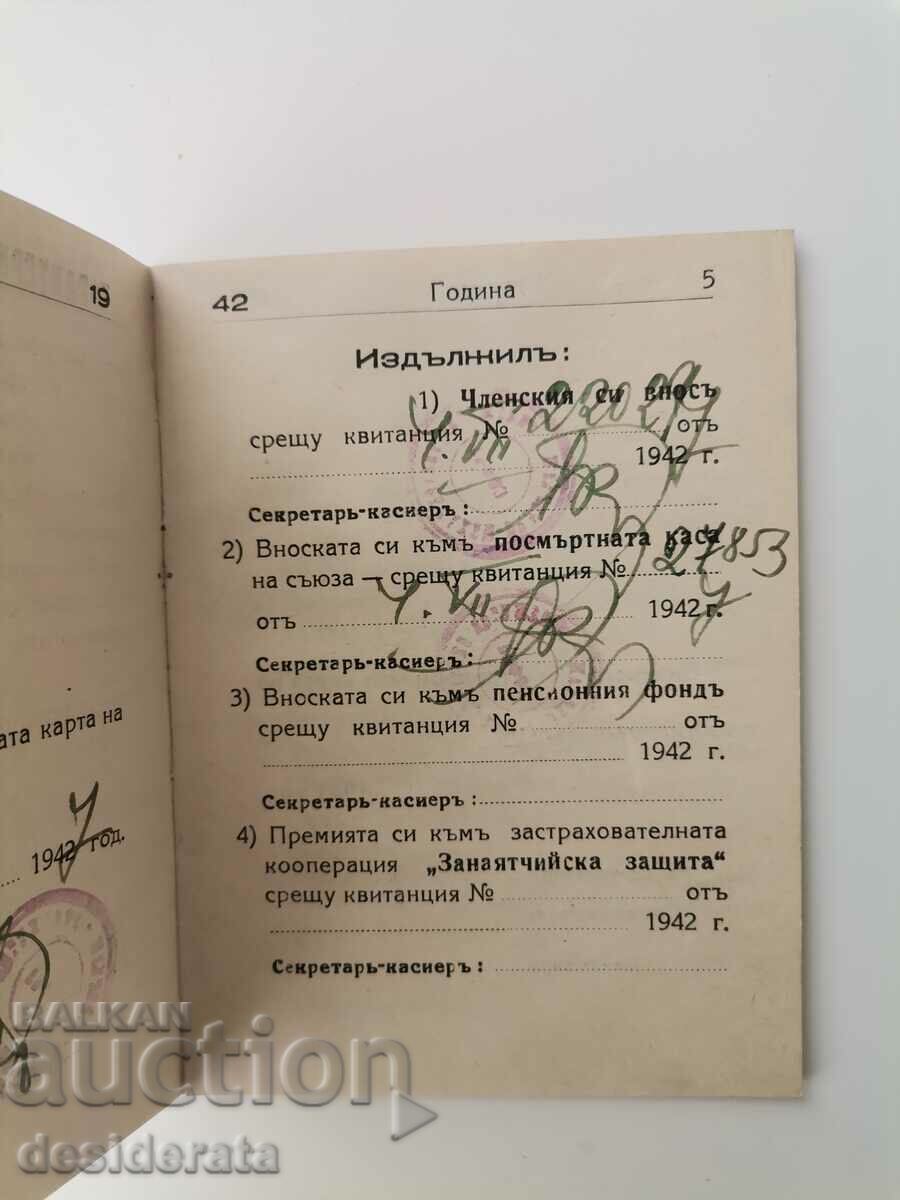 19
ата карта на
1942 год.
42 Година 5
Издължилъ:
1) Членския си вносъ
срещу квитанция № 22027 отъ
4. VII 1942 г.
Секретарь-касиеръ:
2) Вноската си къмъ посмъртната каса
на съюза — срещу квитанция № 27853
отъ 4. VII 1942 г.
Секретарь-касиеръ:
3) Вноската си къмъ пенсионния фондъ
срещу квитанция № отъ
1942 г.
Секретарь-касиеръ:
4) Премията си къмъ застрахователната
кооперация „Занаятчийска защита“
срещу квитанция № отъ
1942 г.
Секретарь-касиеръ:
BALKAN
auction
desiderata